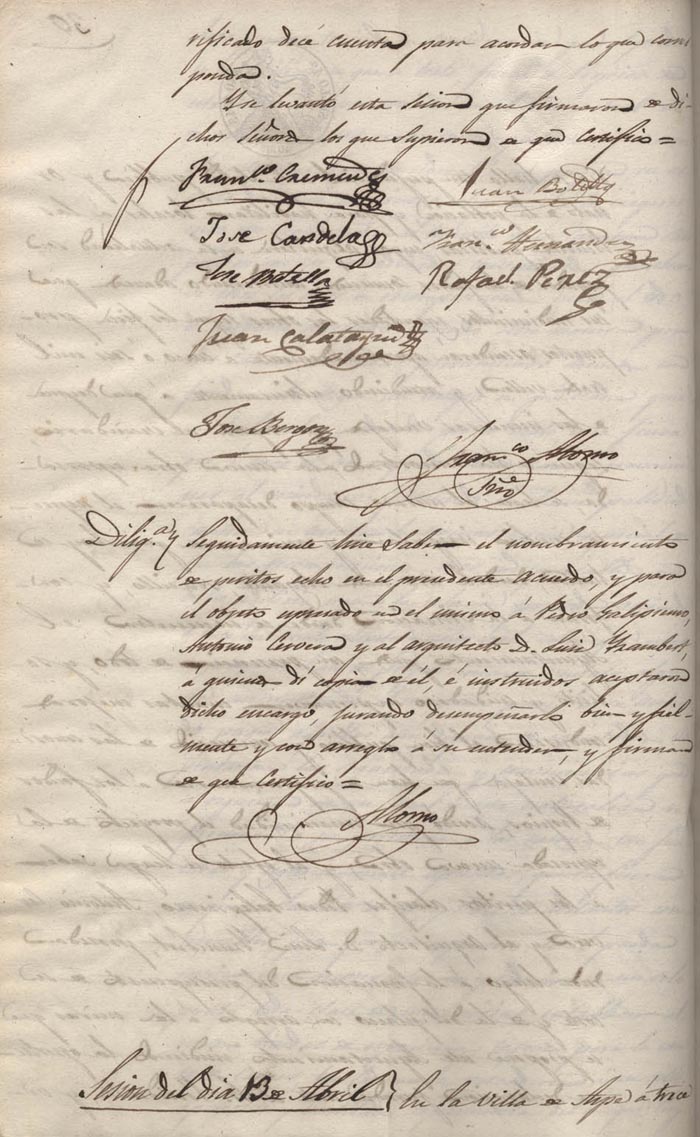 rificado decé cuenta para acordar lo que corres
ponda.
Y se levantó esta sesion que firmaron de di-
chos Señores los que supieron de que certifico =
Fran.co
Juan Botella
Jose Candela
Fran.co Hernandez
Jose Botella
Rafael Perez
Juan Calatayud
Jose
Fran.co Alorno
Srio
Dilig.a Seguidamente hice saber el nombramiento
de peritos echo en el presedente acuerdo, y para
el objeto espresado en el mismo á Pedro Galipienso,
Antonio Cervera y al arquitecto D. Luis
á quienes dí copia de él, é instruidos aceptaron
dicho encargo, jurando desempeñarlo bien y fiel-
mente y con arreglo á su entender, y firman
de que certifico =
Alorno
Sesion del dia 13 de Abril } En la villa de Aspe á trece